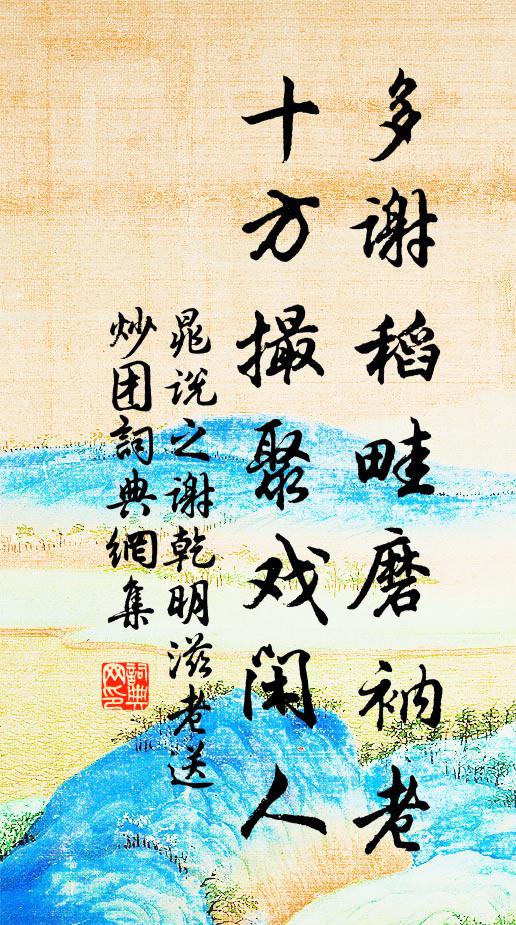 多谢稻畦磨衲老
十方撮聚戏闲人
晁说之谢乾明滋老送
炒团词典網集
詞典
网印